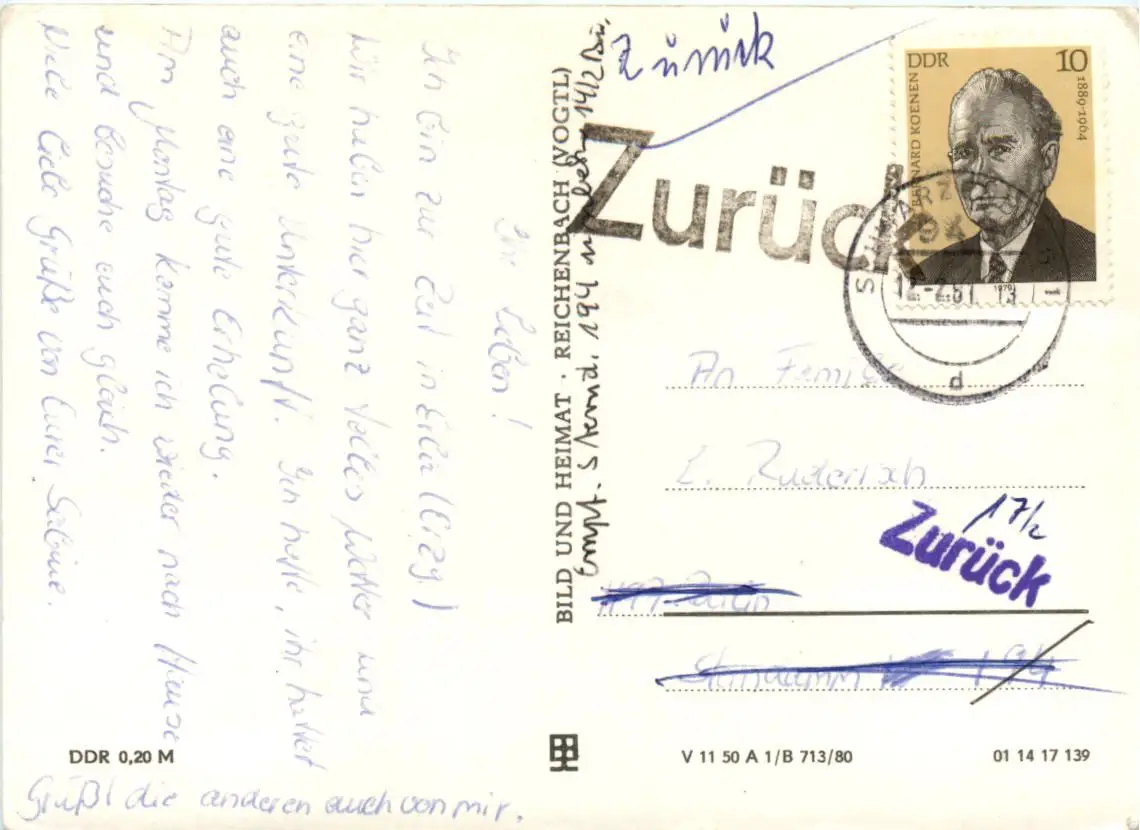 Ihr Lieben!
Ich bin zur Zeit in Eila (Erzg)
Wir haben hier ganz tolles Wetter und
eine gute Unterkunft. Ich hoffe, ihr hattet
auch eine gute Erholung.
Am Montag komme ich wieder nach Hause
und besuche euch gleich.
Viele liebe Grüße von Eurer Sabine.
Grüßt die anderen auch von mir.
DDR 0,20 M
BILD UND HEIMAT · REICHENBACH (VOGTL)
Empf. Sternd. 194 14/2
Zurück
Zurück
DDR 10
BERNARD KOENEN
1889-1964
1979
SCHWARZ
12.-2.81 13
d
An Familie
E. Ruderisch
17/2
Zurück
1197 Berlin
Sterndamm 194
V 11 50 A 1/B 713/80
01 14 17 139